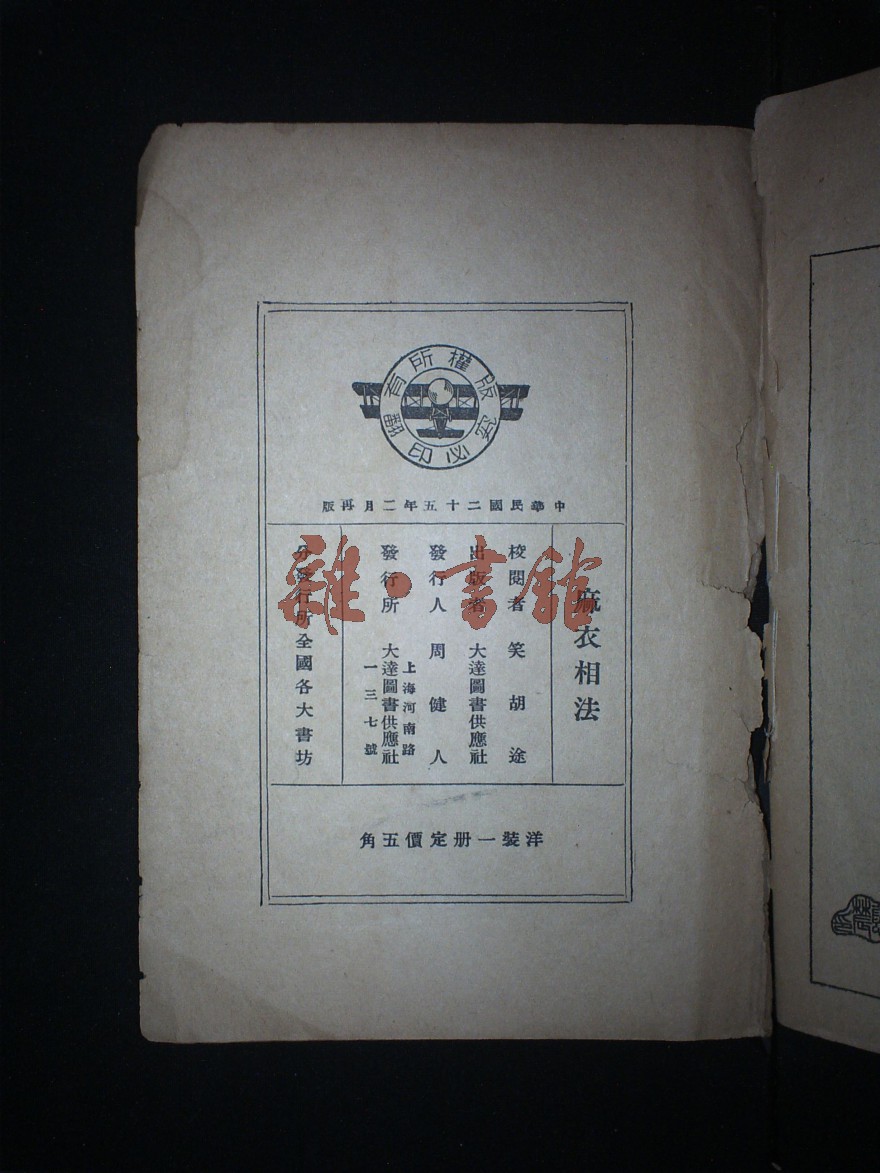 版權所有
翻印必究
中華民國二十五年二月再版
麻衣相法
校閱者 笑胡途
出版者 大達圖書供應社
發行人 周健人
發行所 大達圖書供應社
上海河南路
一三七號
分發行所全國各大書坊
洋裝一册定價五角
雜·書館